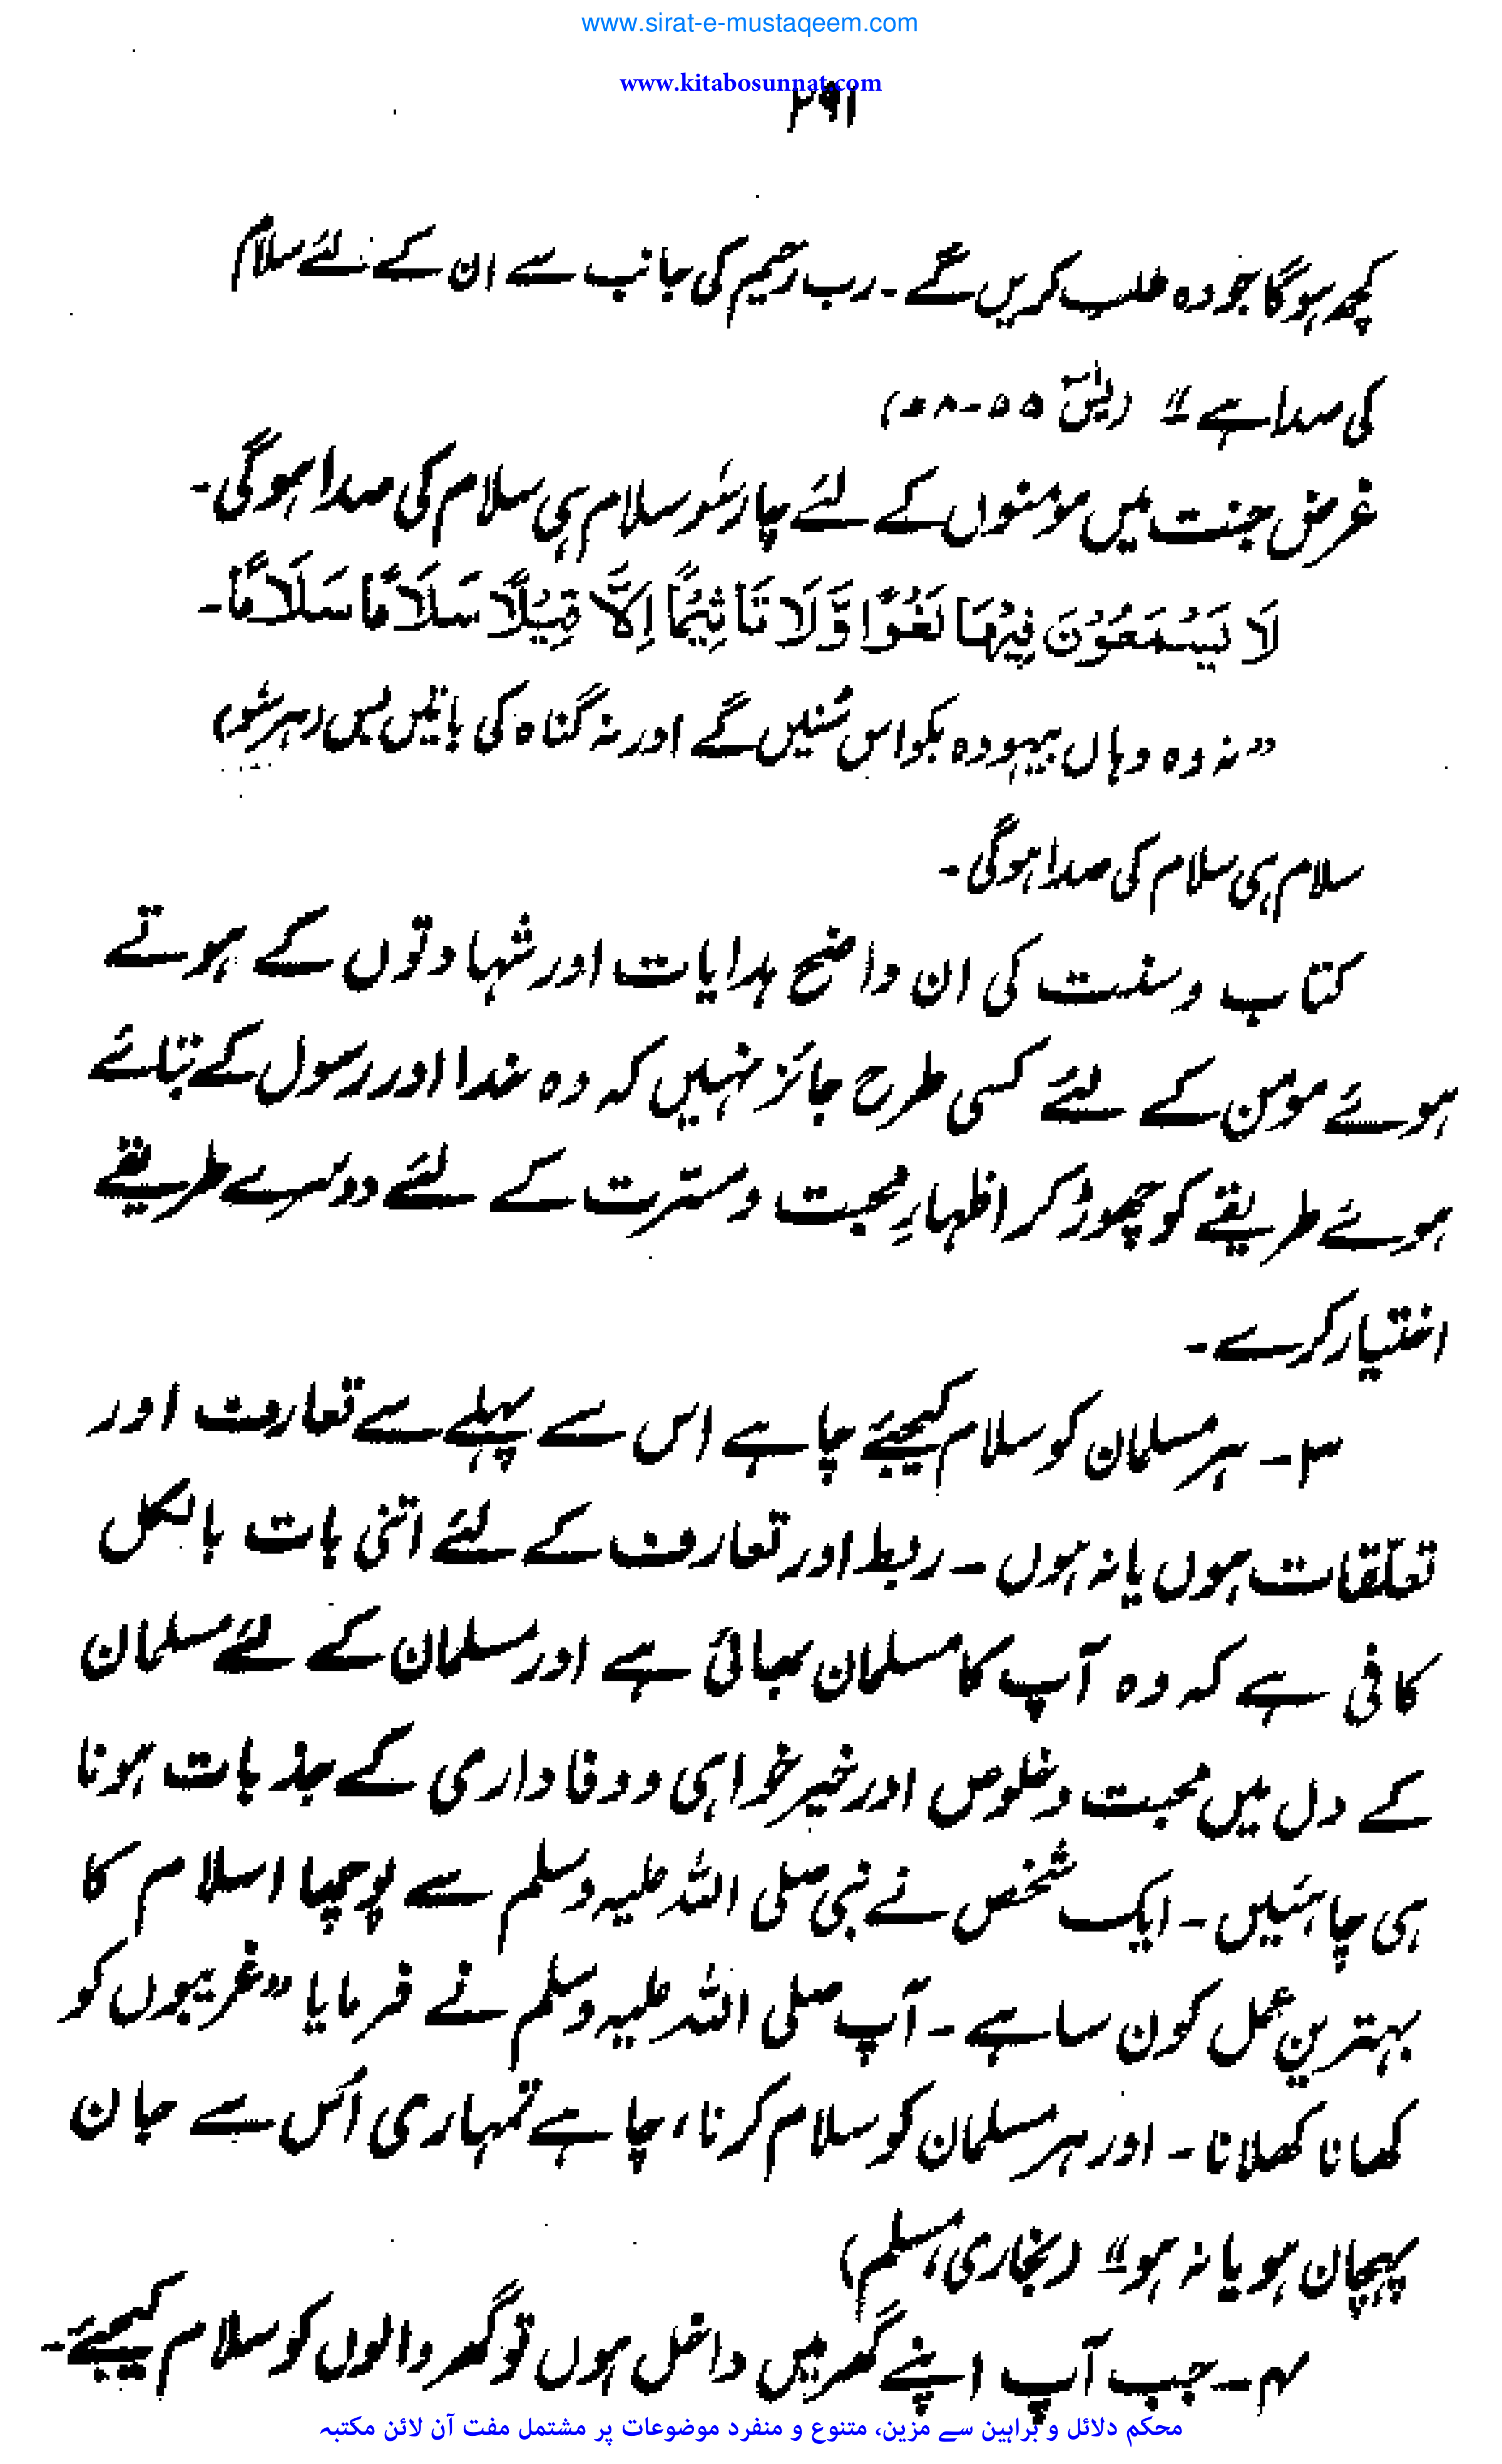 www.sirat-e-mustaqeem.com
www.kitabosunnat.com
۲۹۱
کچھ ہوگا جو وہ طلب کریں گے ۔ رب رحیم کی جانب سے ان کے لئے سلام
کی صدا ہے"۔ (یٰسٓ ۵۵-۵۸)
غرض جنت میں مومنوں کے لئے چار سُو سلام ہی سلام کی صدا ہوگی۔
لَا يَسْمَعُوْنَ فِيْهَا لَغْوًا وَّلَا تَاْثِيْمًا اِلَّا قِيْلًا سَلَامًا سَلَامًا۔
"نہ وہ وہاں بیہودہ بکواس سُنیں گے اور نہ گناہ کی باتیں بس (ہر سُو)
سلام ہی سلام کی صدا ہوگی۔
کتاب و سنت کی ان واضح ہدایات اور شہادتوں کے ہوتے
ہوئے مومن کے لئے کسی طرح جائز نہیں کہ وہ خدا اور رسول کے بتائے
ہوئے طریقے کو چھوڑ کر اظہارِ محبت و مسّرت کے لئے دوسرے طریقے
اختیار کرے۔
۳۔ ہر مسلمان کو سلام کیجیئے چاہے اس سے پہلے سے تعارف اور
تعلّقات ہوں یا نہ ہوں۔ ربط اور تعارف کے لئے اتنی بات بالکل
کافی ہے کہ وہ آپ کا مسلمان بھائی ہے اور مسلمان کے لئے مسلمان
کے دل میں محبت و خلوص اور خیر خواہی و وفاداری کے جذبات ہونا
ہی چاہئیں۔ ایک شخص نے نبی صلی اللہ علیہ وسلم سے پوچھا اسلام کا
بہترین عمل کون سا ہے۔ آپ صلی اللہ علیہ وسلم نے فرمایا "غریبوں کو
کھانا کھلانا۔ اور ہر مسلمان کو سلام کرنا، چاہے تمہاری اُس سے جان
پہچان ہو یا نہ ہو"۔ (بخاری، مسلم)
۴۔ جب آپ اپنے گھر میں داخل ہوں تو گھر والوں کو سلام کیجیئے۔
محکم دلائل و براہین سے مزین، متنوع و منفرد موضوعات پر مشتمل مفت آن لائن مکتبہ